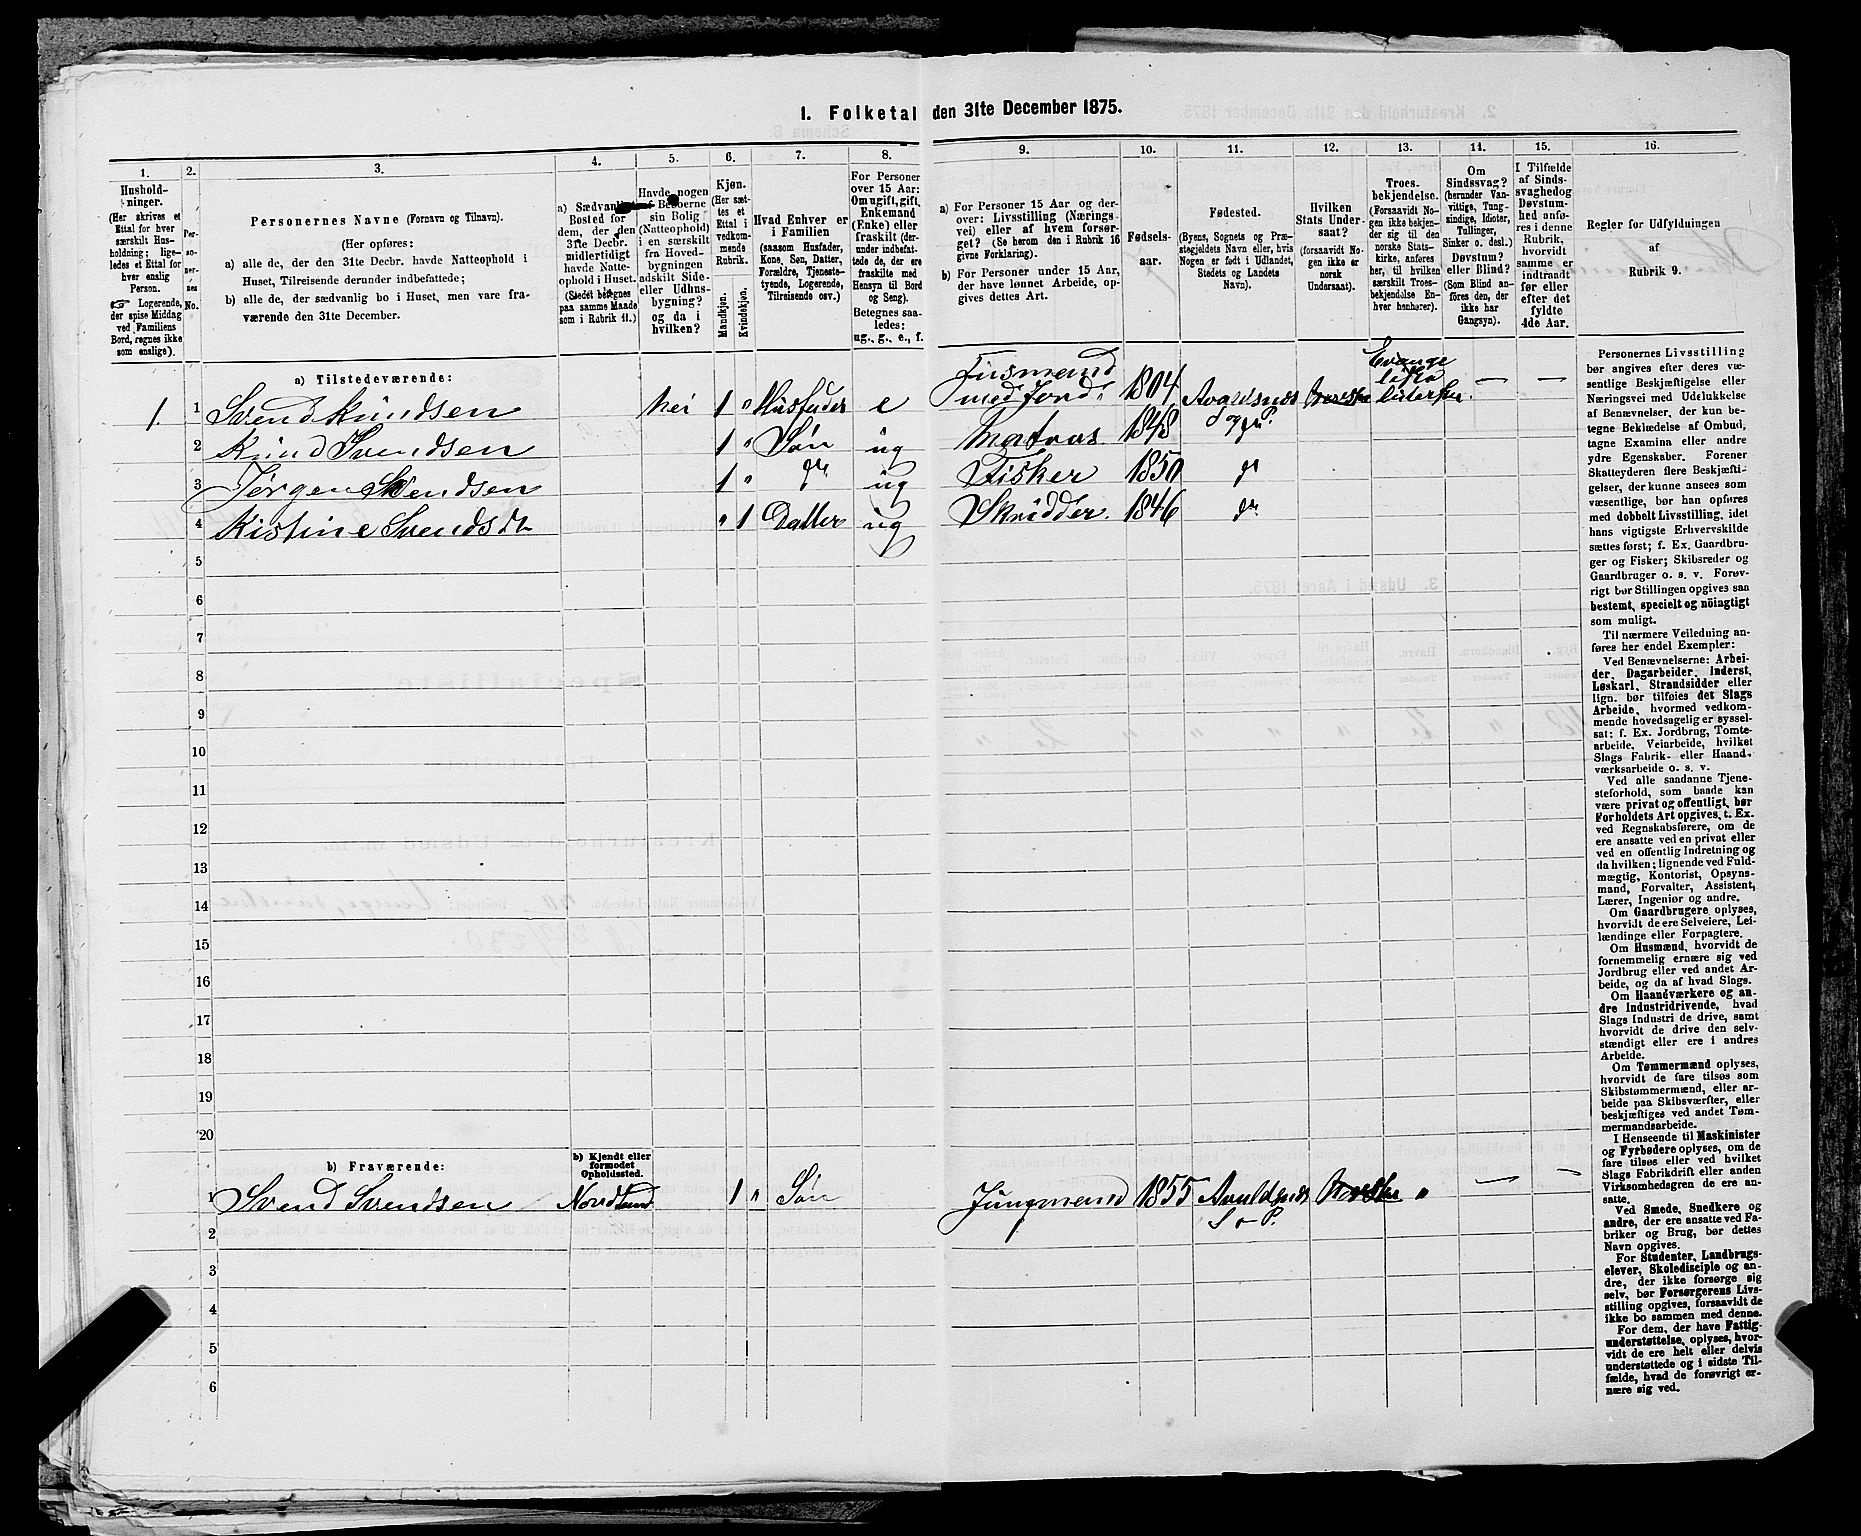 1. Folketal den 31te December 1875.
1.
Hushold-
ninger.
(Her skrives et
Ettal for hver
særskilt Hus-
holdning; lige-
ledes et Ettal for
hver enslig
Person.
Logerende,
der spise Middag
ved Familiens
Bord, regnes ikke
som enslige).
2.
Per-
so-
ner-
nes
No.
3.
Personernes Navne (Fornavn og Tilnavn).
(Her opføres:
a) alle de, der den 31te Decbr. havde Natteophold i
Huset, Tilreisende derunder indbefattede;
b) alle de, der sædvanlig bo i Huset, men vare fra-
værende den 31te December.
4.
a) Sædvanligt
Bosted for
dem, der den
31te Decbr.
midlertidigt
havde Natte-
ophold i Huset.
(Stedet betegnes
paa samme Maade
som i Rubrik 11.)
5.
Havde nogen
af Beboerne
sin Bolig
(Natteophold)
i en særskilt
fra Hoved-
bygningen
adskilt Side-
eller Udhus-
bygning?
og da i
hvilken?
6.
Kjøn.
(Her sæt-
tes et
Ettal i
vedkom-
mende
Rubrik.
Mandkjøn.
Kvindekjøn.
7.
Hvad Enhver er
i Familien
(saasom Husfader,
Kone, Søn, Datter,
Forældre, Tjeneste-
tyende, Logerende,
Tilreisende osv.)
8.
For Personer
over 15 Aar:
Om ugift, gift,
Enkemand
(Enke) eller
fraskilt (der-
under indbefat-
tede de, der ere
fraskilte med
Hensyn til Bord
og Seng).
Betegnes saa-
ledes:
ug., g., e., f.
9.
a) For Personer 15 Aar og der-
over: Livsstilling (Nærings-
vei) eller af hvem forsør-
get? (Se herom den i Rubrik 16
givne Forklaring).
b) For Personer under 15 Aar,
der have lønnet Arbeide, op-
gives dettes Art.
10.
Fødsels-
aar.
11.
Fødested.
(Byens, Sognets og Præ-
stegjeldets Navn eller, hvis
Nogen er født i Udlandet,
Stedets og Landets
Navn).
12.
Hvilken
Stats Under-
saat?
(forsaavidt No-
gen ikke er
norsk
Undersaat).
13.
Troes-
bekjendelse.
(Forsaavidt No-
gen ikke bekjen-
der sig til den
norske Stats-
kirke, anføres
her, til hvilken
særskilt Troes-
bekjendelse En-
hver henhører).
14.
Om
Sindssvag?
(herunder Van-
vittige, Tung-
sindige, Idioter,
Tullinger,
Sinker o. desl.)
Døvstum?
eller Blind?
(Som Blind an-
føres den, der
ikke har
Gangsyn).
15.
I Tilfælde
af Sinds-
svaghed og
Døvstum-
hed anfø-
res i denne
Rubrik,
hvorvidt
samme er
indtraadt
før eller
efter det
fyldte
4de Aar.
16.
Regler for Udfyldningen
af
Rubrik 9.
a) Tilstedeværende:
1. 1 Svend Knudsen nei 1 " Husfader e Husmand med Jord 1804 Avaldsnes Sogn P. Norske Evange
2 Knud Svendsen 1 " Søn ug Matros 1848
3 Jørgen Svendsen 1 " do ug Fisker 1850 do
4 Kistine Svendsdt " 1 Datter ug 1846 do
5
6
7
8
9
10
11
12
13
14
15
16
17
18
19
20
b) Fraværende:
b) Kjendt eller
formodet
Opholdssted.
1 Svend Svendsen Nordland 1 " Søn Jungmand 1855 Avaldsnes Norske "
S o P.
2
3
4
5
6
Personernes Livsstilling
bør angives efter deres væ-
sentlige Beskjæftigelse eller
Næringsvei med Udelukkelse
af Benævnelser, der kun be-
tegne Beklædelse af Ombud,
tagne Examina eller andre
ydre Egenskaber. Forener
Skatteyderen flere Beskjæfti-
gelser, der kunne ansees som
væsentlige, bør han opføres
med dobbelt Livsstilling, idet
hans vigtigste Erhvervskilde
sættes først; f. Ex. Gaardbru-
ger og Fisker; Skibsreder og
Gaardbruger o. s. v. Forøv-
rigt bør Stillingen opgives saa
bestemt, specielt og nöiagtigt
som muligt.
Til nærmere Veiledning an-
føres her endel Exempler:
Ved Benævnelserne: Arbei-
der, Dagarbeider, Inderst,
Løskarl, Strandsidder eller
lign. bør tilføies det Slags
Arbeide, hvormed vedkom-
mende hovedsagelig er syssel-
sat; f. Ex. Jordbrug, Tomte-
arbeide, Veiarbeide, hvilket
Slags Fabrik- eller Haand-
værksarbeide o. s. v.
Ved alle saadanne Tjene-
steforhold, som baade kan
være privat og offentligt, bør
Forholdets Art opgives, t. Ex.
ved Regnskabsførere, om de
ere ansatte ved en privat eller
ved en offentlig Indretning og
da hvilken; lignende ved Fuld-
mægtig, Kontorist, Opsyns-
mand, Forvalter, Assistent,
Lærer, Ingeniør og andre.
Om Gaardbrugere oplyses,
hvorvidt de ere Selveiere, Lei-
lændinge eller Forpagtere.
Om Husmænd, hvorvidt de
fornemmelig ernære sig ved
Jordbrug eller ved andet Ar-
beide, og da af hvad Slags.
Om Haandværkere og an-
dre Industridrivende, hvad
Slags Industri de drive, samt
hvorvidt de drive den selv-
stændigt eller ere i andres
Arbeide.
Om Tømmermænd oplyses,
hvorvidt de fare tilsøs som
Skibstømmermænd, eller ar-
beide paa Skibsværfter, eller
beskjæftiges ved andet Tøm-
mermandsarbeide.
I Henseende til Maskinister
og Fyrbødere oplyses, om de
fare tilsøs eller ved hvilket
Slags Fabrikdrift eller anden
Virksomhedsgren de ere an-
satte.
Ved Smede, Snedkere og
andre, der ere ansatte ved Fa-
briker og Brug, bør dettes
Navn opgives.
For Studenter, Landbrugs-
elever, Skoledisciple og an-
dre, der ikke forsørge sig
selv, bør Forsørgerens Livs-
stilling opgives, forsaavidt de
ikke bo sammen med denne.
For dem, der have Fattig-
understøttelse, oplyses, hvor-
vidt de ere helt eller delvis
understøttede og i sidste Til-
fælde, hvad de forøvrigt er-
nære sig ved.